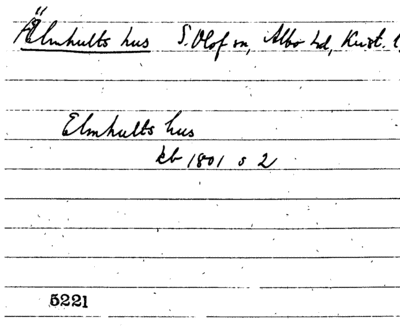 Älmhults hus S. Olof sn, Albo hd, Krist. l,
Elmhults hus
kb 1801 s 2
5221